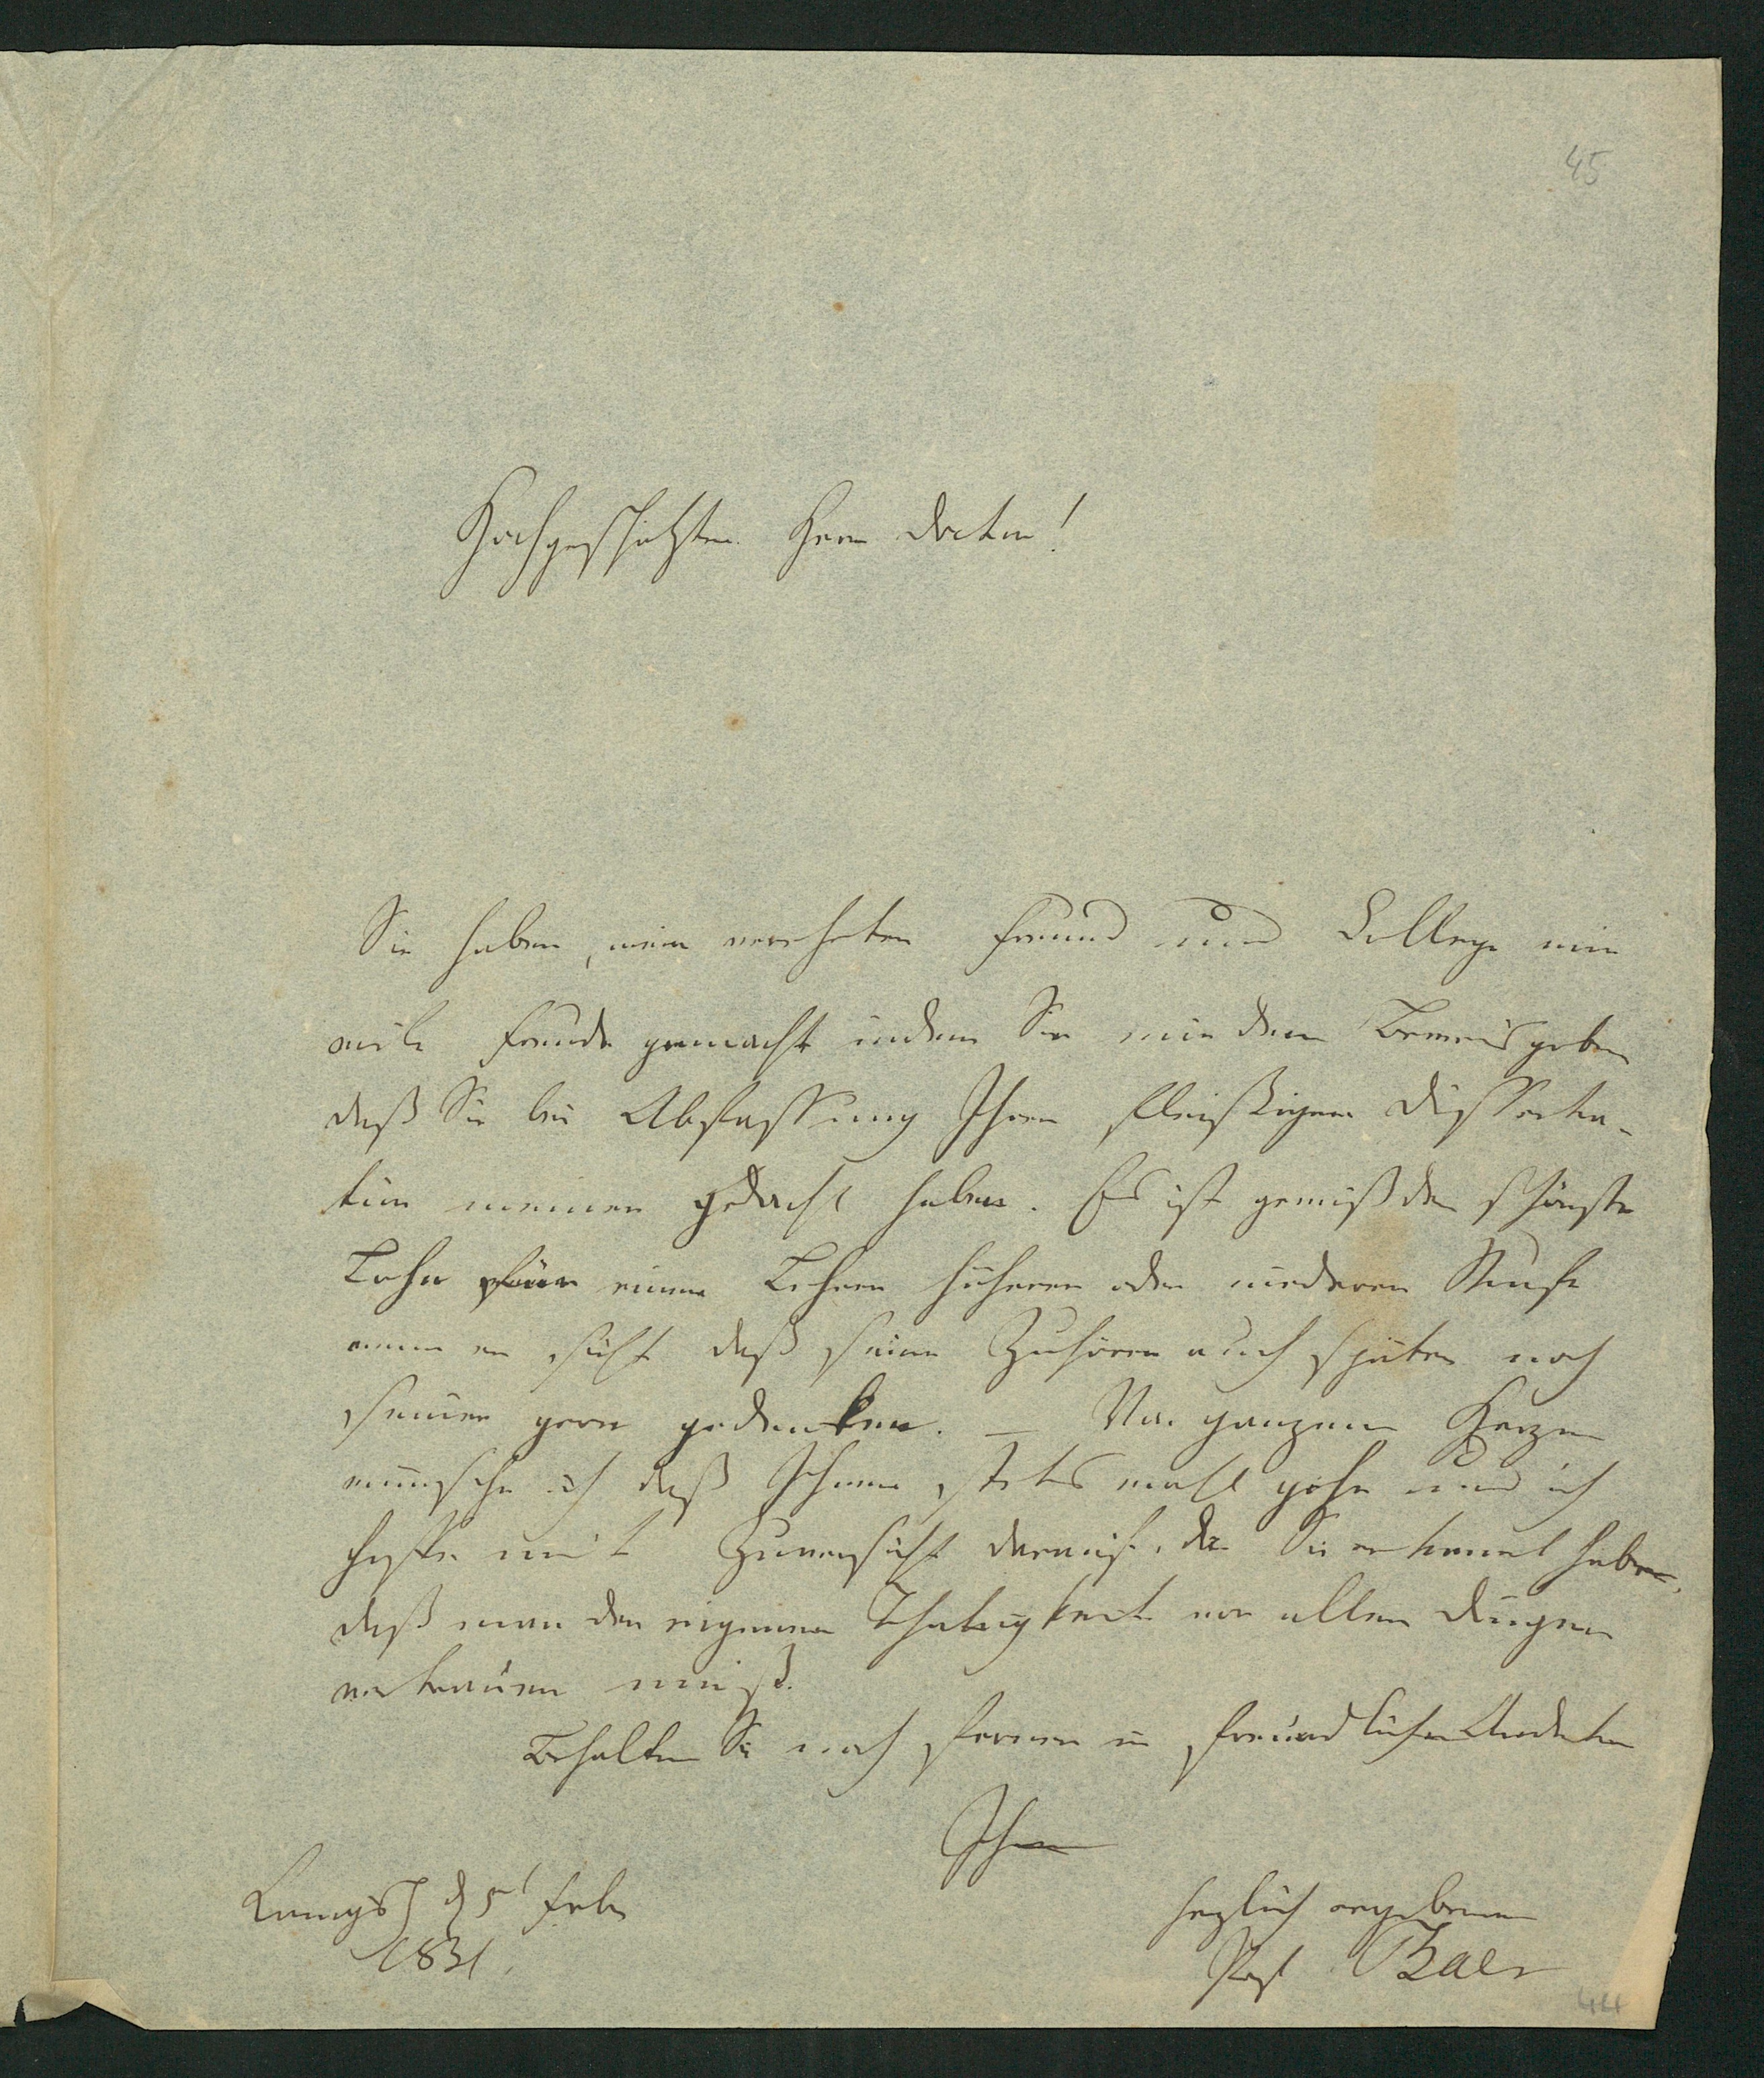 45
Hochgeschätzter Herr Doctor!
Sie haben, mein verehrter Freund und College mir
viele Freude gemacht indem Sie mir den Beweis geben
daß Sie bei Abfassung Ihrer fleißigen Disserta-
tion meiner gedacht haben. Es ist gewiß der schönste
Lohn für einen Lehrer höherer oder niederer Stufe
wenn er sieht daß seine Zuhörer auch später noch
seiner gern gedenken. — Von ganzem Herzen
wünsche ich daß Ihnen stets wohl gehe und ich
hoffe mit Zuversicht darauf, da Sie erkannt haben,
daß man der eigenen Thätigkeit vor allen Dingen
vertrauen muß.
Behalten Sie noch ferner in freundlichen Andenken
Ihren
Königsb d 5t Febr
herzlich ergebenen
1831.
Prof Baer
44